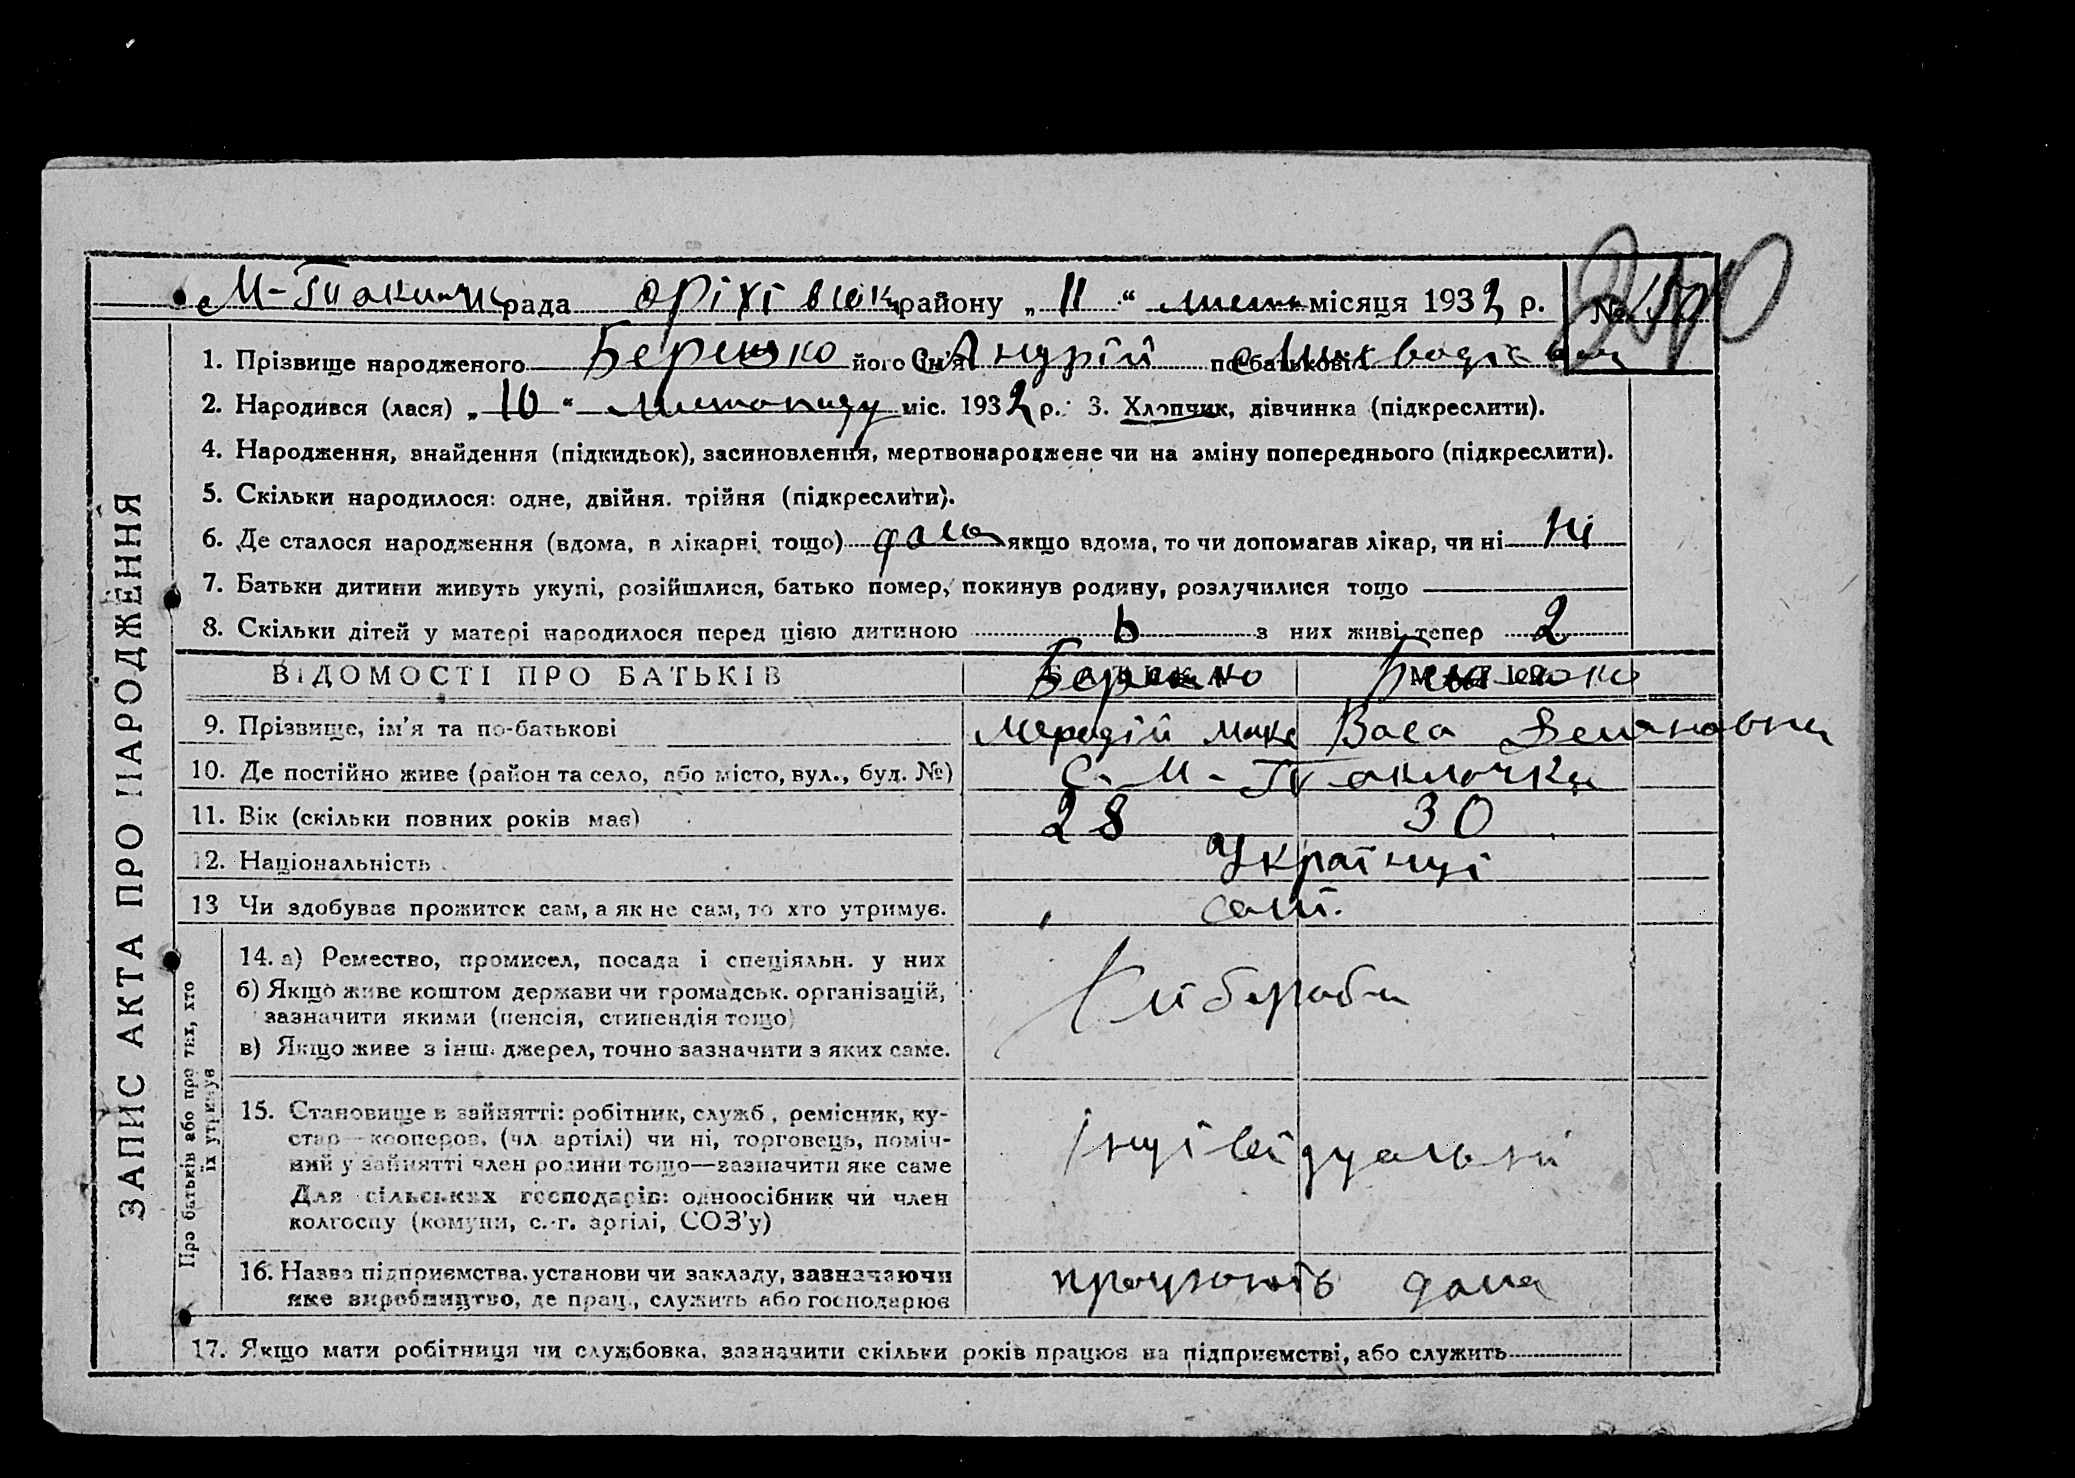 М-Токмач рада Оріхівськ району „11“ лист місяця 1932 р. №
1. Прізвище народженого Берешко його ім'я Андрій по батькові
2. Народився (лася) „10“ листопаду міс. 1932 р.: 3. Хлопчик, дівчинка (підкреслити).
4. Народження, знайдення (підкидьок), засиновлення, мертвонароджене чи на зміну попереднього (підкреслити).
5. Скільки народилося: одне, двійня. трійня (підкреслити).
6. Де сталося народження (вдома, в лікарні тощо) дома якщо вдома, то чи допомагав лікар, чи ні ні
7. Батьки дитини живуть укупі, розійшлися, батько помер, покинув родину, розлучилися тощо
8. Скільки дітей у матері народилося перед цією дитиною 6 з них живі тепер 2
ВІДОМОСТІ ПРО БАТЬКІВ Берешко
9. Прізвище, ім'я та по-батькові Васа
10. Де постійно живе (район та село, або місто, вул., буд. №) С. М-Токмачка
11. Вік (скільки повних років має) 28 30
12. Національність Українці
13 Чи здобуває прожиток сам, а як не сам, то хто утримує. самі.
14. а) Ремество, промисел, посада і спеціяльн. у них
б) Якщо живе коштом держави чи громадськ. організацій,
зазначити якими (пенсія, стипендія тощо)
в) Якщо живе з інш. джерел, точно зазначити з яких саме.
Хлібороби
15. Становище в зайнятті: робітник, служб., ремісник, ку-
стар—кооперов. (чл. артілі) чи ні, торговець, поміч-
ний у зайнятті член родини тощо—зазначити яке саме
Для сільських господарів: одноосібник чи член
колгоспу (комуни, с.-г. артілі, СОЗ'у)
індівідуальні
16. Назва підприємства, установи чи закладу, зазначаючи
яке виробництво, де прац., служить або господарює
працюють дома
17. Якщо мати робітниця чи службовка, зазначити скільки років працює на підприємстві, або служить
ЗАПИС АКТА ПРО НАРОДЖЕННЯ
Про батьків або про тих, хто
їх утримує